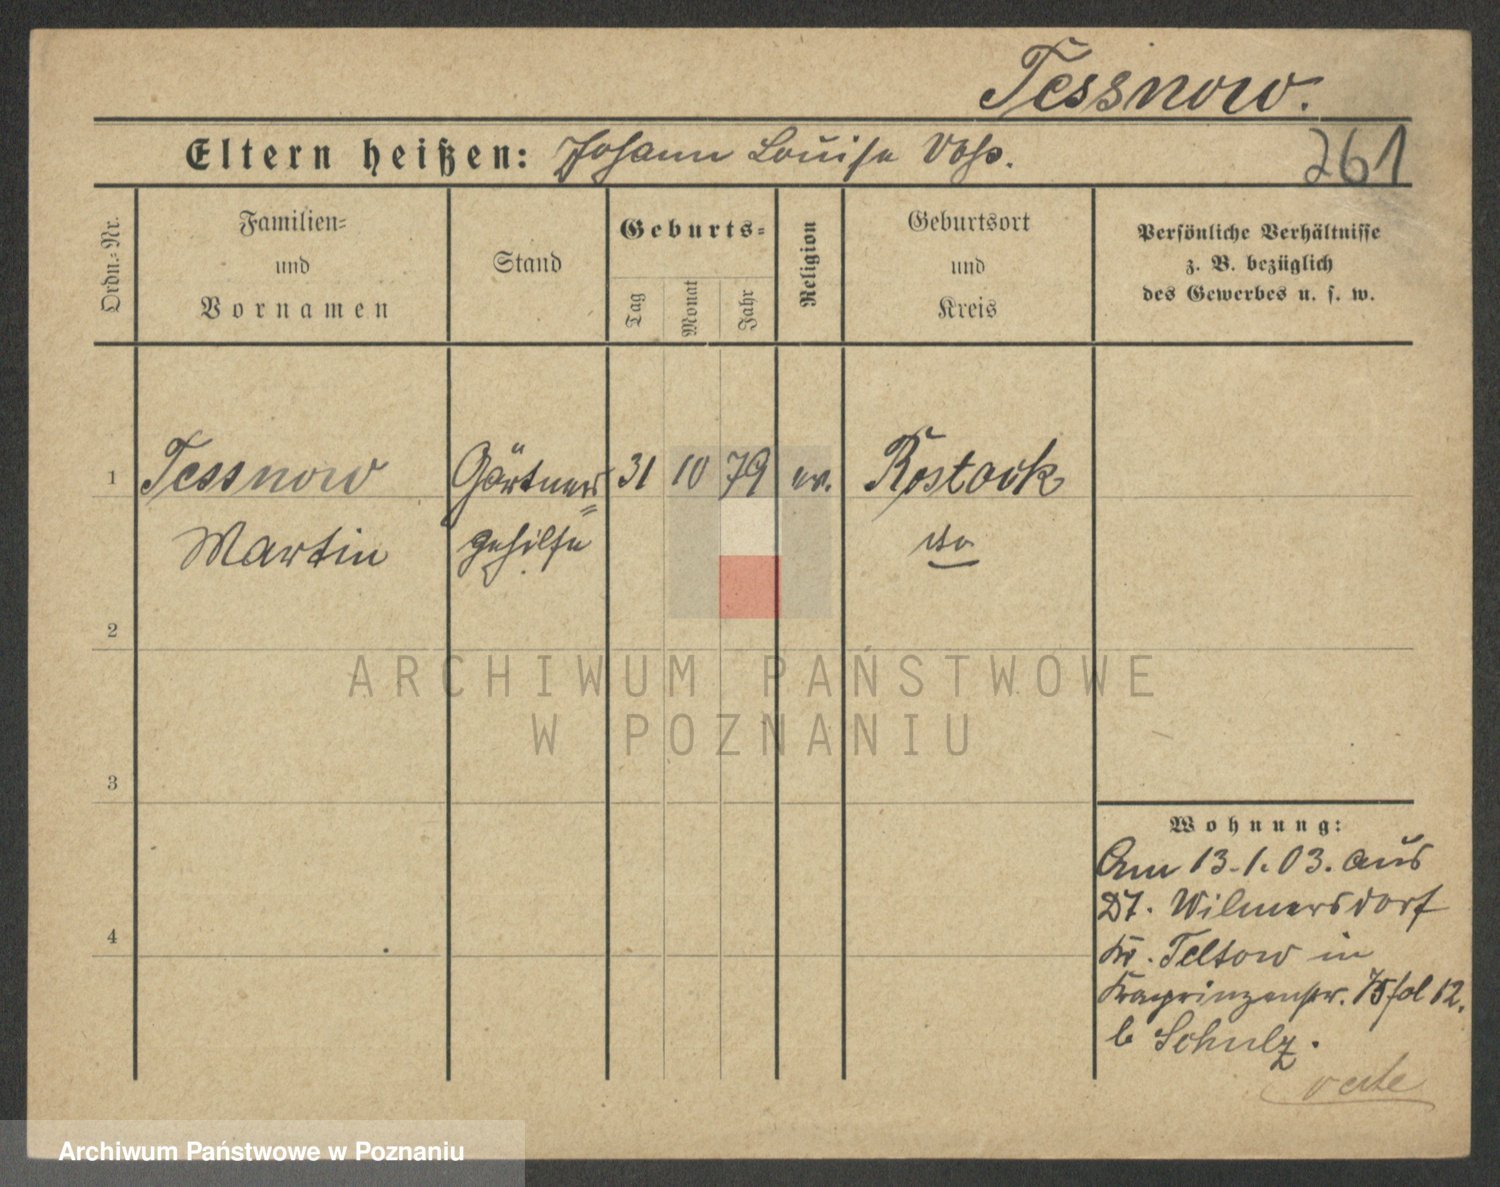 Tessnow.
Eltern heißen: Johann Louise Voss.
261
Ordn.-Nr.
Familien-
und
Vornamen
Stand
Geburts-
Tag
Monat
Jahr
Religion
Geburtsort
und
Kreis
Persönliche Verhältnisse
z. B. bezüglich
des Gewerbes u. s. w.
1 Tessnow Gärtner= 31 10 79 ev. Rostock
Martin gehilfe dto
2
ARCHIWUM PAŃSTWOWE
W POZNANIU
3
Wohnung:
Am 13.1.03. aus
Dt. Wilmersdorf
4
Kr. Teltow in
Kronprinzenstr. 75 fol 12.
b Schulz.
verte
Archiwum Państwowe w Poznaniu